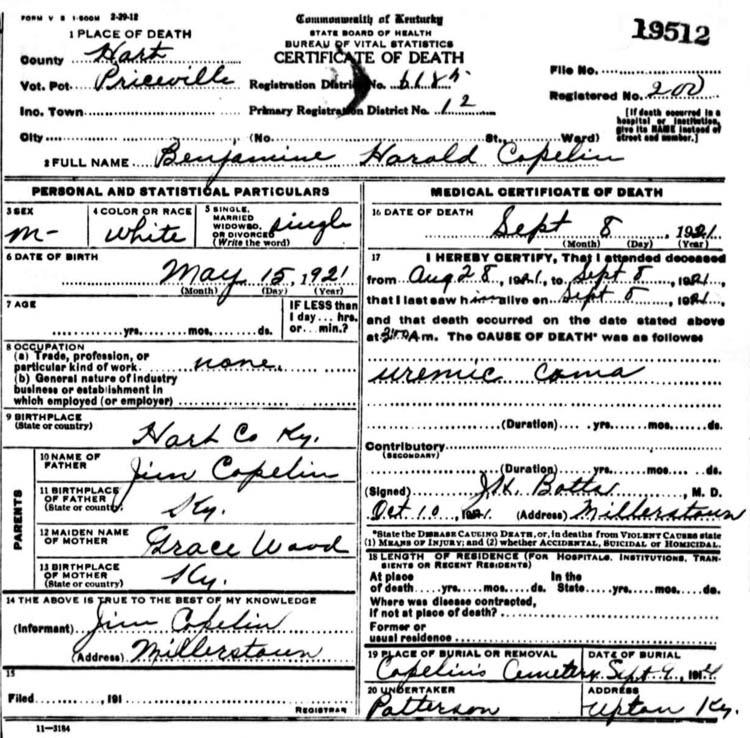 FORM V S 1-500M 2-29-12
Commonwealth of Kentucky
STATE BOARD OF HEALTH
BUREAU OF VITAL STATISTICS
CERTIFICATE OF DEATH
19512
1 PLACE OF DEATH
County Hart
Vot. Pct. Priceville
Inc. Town
City
Registration District No.
Primary Registration District No. 12
File No.
Registered No. 200
[If death occurred in a
hospital or institution,
give its NAME instead of
street and number.]
(No. St., Ward)
2 FULL NAME Benjamine Harold Copelin
PERSONAL AND STATISTICAL PARTICULARS
3 SEX
M-
4 COLOR OR RACE
White
5 SINGLE,
MARRIED
WIDOWED,
OR DIVORCED
(Write the word)
single
6 DATE OF BIRTH
May 15, 1921
(Month) (Day) (Year)
7 AGE
yrs. mos. ds.
IF LESS than
1 day... hrs.
or... min.?
8 OCCUPATION
(a) Trade, profession, or
particular kind of work none
(b) General nature of industry
business or establishment in
which employed (or employer)
9 BIRTHPLACE
(State or country)
Hart Co Ky.
PARENTS
10 NAME OF
FATHER
Jim Copelin
11 BIRTHPLACE
OF FATHER
(State or country)
Ky.
12 MAIDEN NAME
OF MOTHER
Grace Wood
13 BIRTHPLACE
OF MOTHER
(State or country)
Ky.
14 THE ABOVE IS TRUE TO THE BEST OF MY KNOWLEDGE
(Informant) Jim Copelin
(Address) Millerstown
15
Filed , 191
REGISTRAR
11-3184
MEDICAL CERTIFICATE OF DEATH
16 DATE OF DEATH
Sept 8, 1921
(Month) (Day) (Year)
17 I HEREBY CERTIFY, That I attended deceased
from Aug 28, 1921, to Sept 8, 1921,
that I last saw him alive on Sept 8, 1921,
and that death occurred on the date stated above
at m. The CAUSE OF DEATH* was as follows
uremic coma
(Duration) yrs. mos. ds.
Contributory
(SECONDARY)
(Duration) yrs. mos. ds.
(Signed) Botts, M. D.
Oct 10, 1921 (Address) Millerstown
*State the DISEASE CAUSING DEATH, or, in deaths from VIOLENT CAUSES state
(1) MEANS OF INJURY; and (2) whether ACCIDENTAL, SUICIDAL or HOMICIDAL.
18 LENGTH OF RESIDENCE (FOR HOSPITALS, INSTITUTIONS, TRAN-
SIENTS OR RECENT RESIDENTS)
At place
of death yrs. mos. ds.
In the
State yrs. mos. ds.
Where was disease contracted,
if not at place of death?
Former or
usual residence
19 PLACE OF BURIAL OR REMOVAL
Copelin's Cemetery
DATE OF BURIAL
Sept 9,
20 UNDERTAKER
Patterson
ADDRESS
Upton Ky.